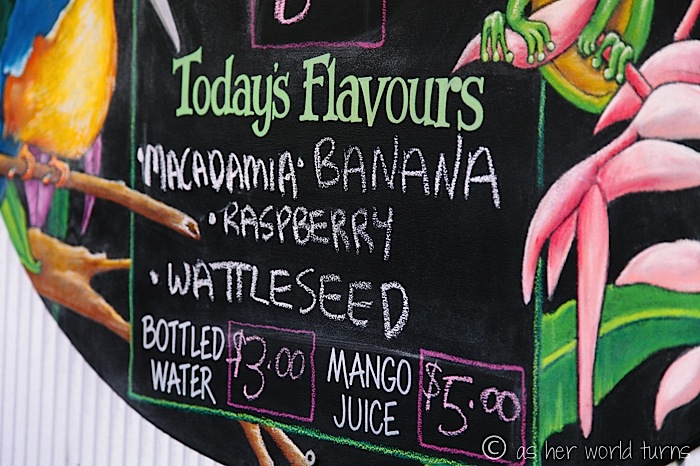 Today's Flavours
•MACADAMIA• BANANA
•RASPBERRY
•WATTLESEED
BOTTLED WATER $3.00
MANGO JUICE $5.00
© as her world turns